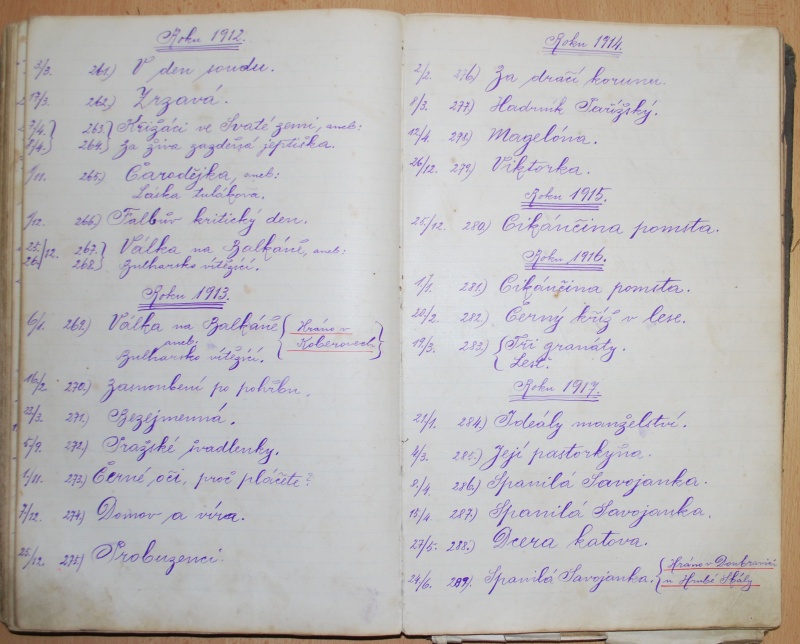 Roku 1912.
3/3. 261.) V den soudu.
17/3. 262.) Zrzavá.
7/4. 263.) Křižáci ve Svaté zemi, aneb:
264.) Za živa zazděná jeptiška.
1/11. 265.) Čarodějka, aneb:
Láska tulákova.
1/12. 266.) Falbův kritický den.
25. 267.) Válka na Balkáně, aneb:
26./12. 268.) Bulharsko vítězící.
Roku 1913.
6/1. 269.) Válka na Balkáně { Hráno v
aneb: Koberovech
Bulharsko vítězící.
16/2. 270.) Zasnoubení po pohřbu.
23/3. 271.) Bezejmenná.
5/9. 272.) Pražské švadlenky.
1/11. 273.) Černé oči, proč pláčete?
7/12. 274.) Domov a víra.
25/12. 275.) Probuzenci.
Roku 1914.
2/2. 276.) Za dračí korunu.
8/3. 277.) Hadrník Pařížský.
12/4. 278.) Magelóna.
26/12. 279.) Viktorka.
Roku 1915.
25/12. 280.) Cikánčina pomsta.
Roku 1916.
1/1. 281.) Cikánčina pomsta.
20/2. 282.) Černý kříž v lese.
19/3. 283.) { Tři granáty.
Lest.
Roku 1917.
21/1. 284.) Ideály manželství.
4/3. 285.) Její pastorkyňa.
8/4. 286.) Spanilá Savojanka.
15/4. 287.) Spanilá Savojanka.
27/5. 288.) Dcera katova.
24/6. 289. Spanilá Savojanka. { Hráno v Doubravici
u Hrubé Skály